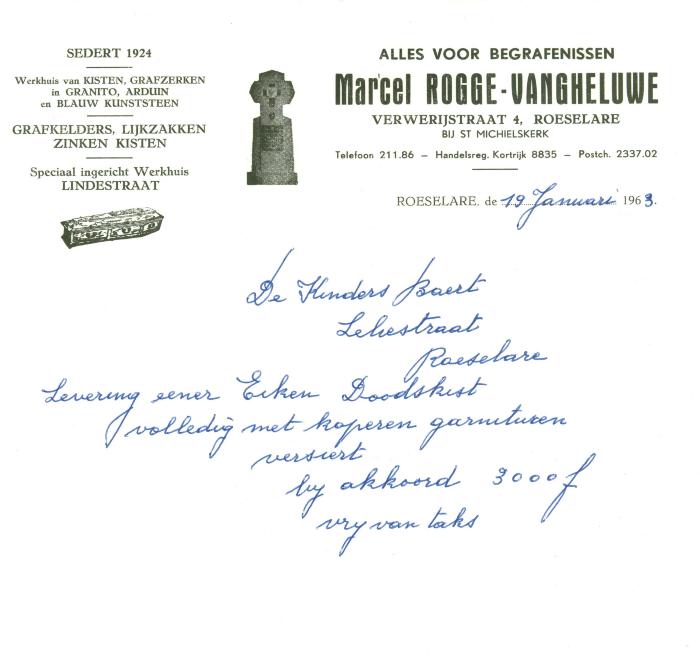 SEDERT 1924
Werkhuis van KISTEN, GRAFZERKEN
in GRANITO, ARDUIN
en BLAUW KUNSTSTEEN
GRAFKELDERS, LIJKZAKKEN
ZINKEN KISTEN
Speciaal ingericht Werkhuis
LINDESTRAAT
ALLES VOOR BEGRAFENISSEN
Marcel ROGGE-VANGHELUWE
VERWERIJSTRAAT 4, ROESELARE
BIJ ST MICHIELSKERK
Telefoon 211.86 — Handelsreg. Kortrijk 8835 — Postch. 2337.02
ROESELARE, de 19 Januari 1963.
De Kinders Baert
Leliestraat
Roeselare
Levering eener Eiken Doodskist
volledig met koperen garnituren
versiert
by akkoord 3000 f
vry van taks